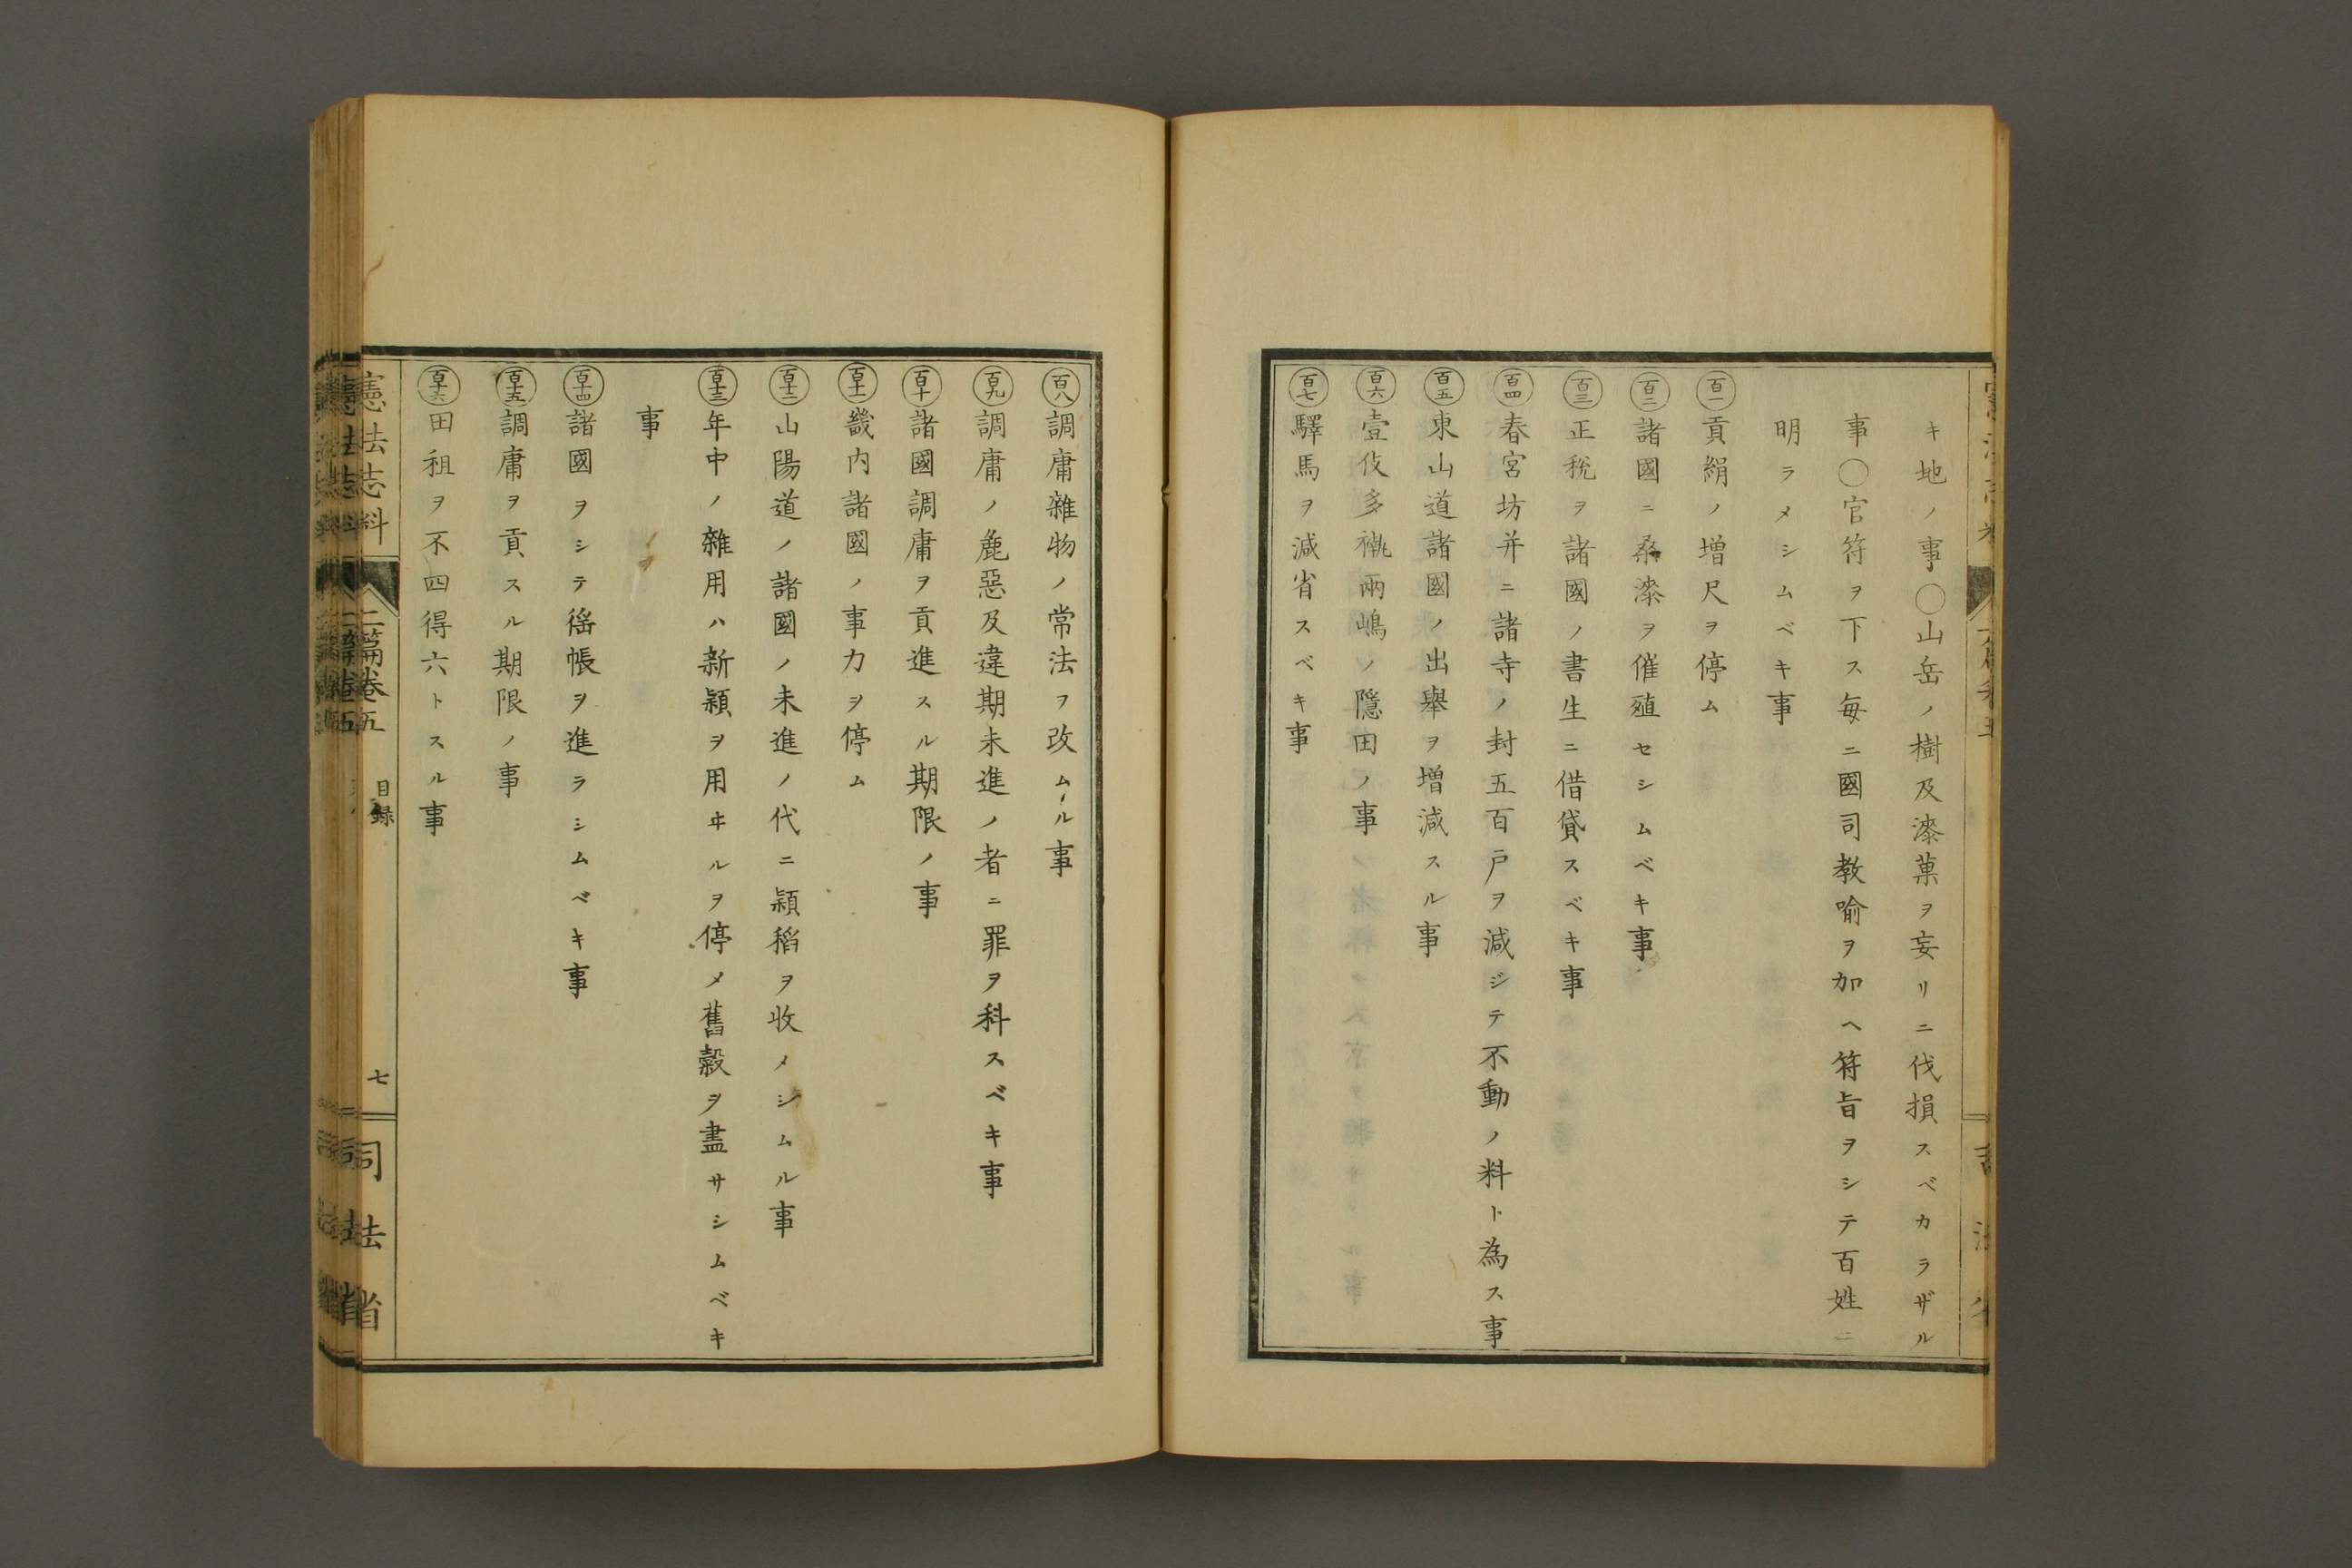 キ地ノ事○山岳ノ樹及漆菓ヲ妄リニ伐損スベカラザル
事○官符ヲ下ス毎ニ國司教喩ヲ加ヘ符旨ヲシテ百姓ニ
明ラメシムベキ事
百一貢絹ノ増尺ヲ停ム
百二諸國ニ桑漆ヲ催殖セシムベキ事
百三正税ヲ諸國ノ書生ニ借貸スベキ事
百四春宮坊并ニ諸寺ノ封五百戸ヲ減ジテ不動ノ料ト為ス事
百五東山道諸國ノ出擧ヲ増減スル事
百六壹伎多褹兩嶋ノ隱田ノ事
百七驛馬ヲ減省スベキ事
百八調庸雜物ノ常法ヲ改ムル事
百九調庸ノ麁惡及違期未進ノ者ニ罪ヲ科スベキ事
百十諸國調庸ヲ貢進スル期限ノ事
百十一畿内諸國ノ事力ヲ停ム
百十二山陽道ノ諸國ノ未進ノ代ニ穎稻ヲ收メシムル事
百十三年中ノ雜用ハ新穎ヲ用ヰルヲ停メ舊穀ヲ盡サシムベキ
事
百十四諸國ヲシテ徭帳ヲ進ラシムベキ事
百十五調庸ヲ貢スル期限ノ事
百十六田租ヲ不四得六トスル事
憲法志料
二篇卷五
目録
七
司法省